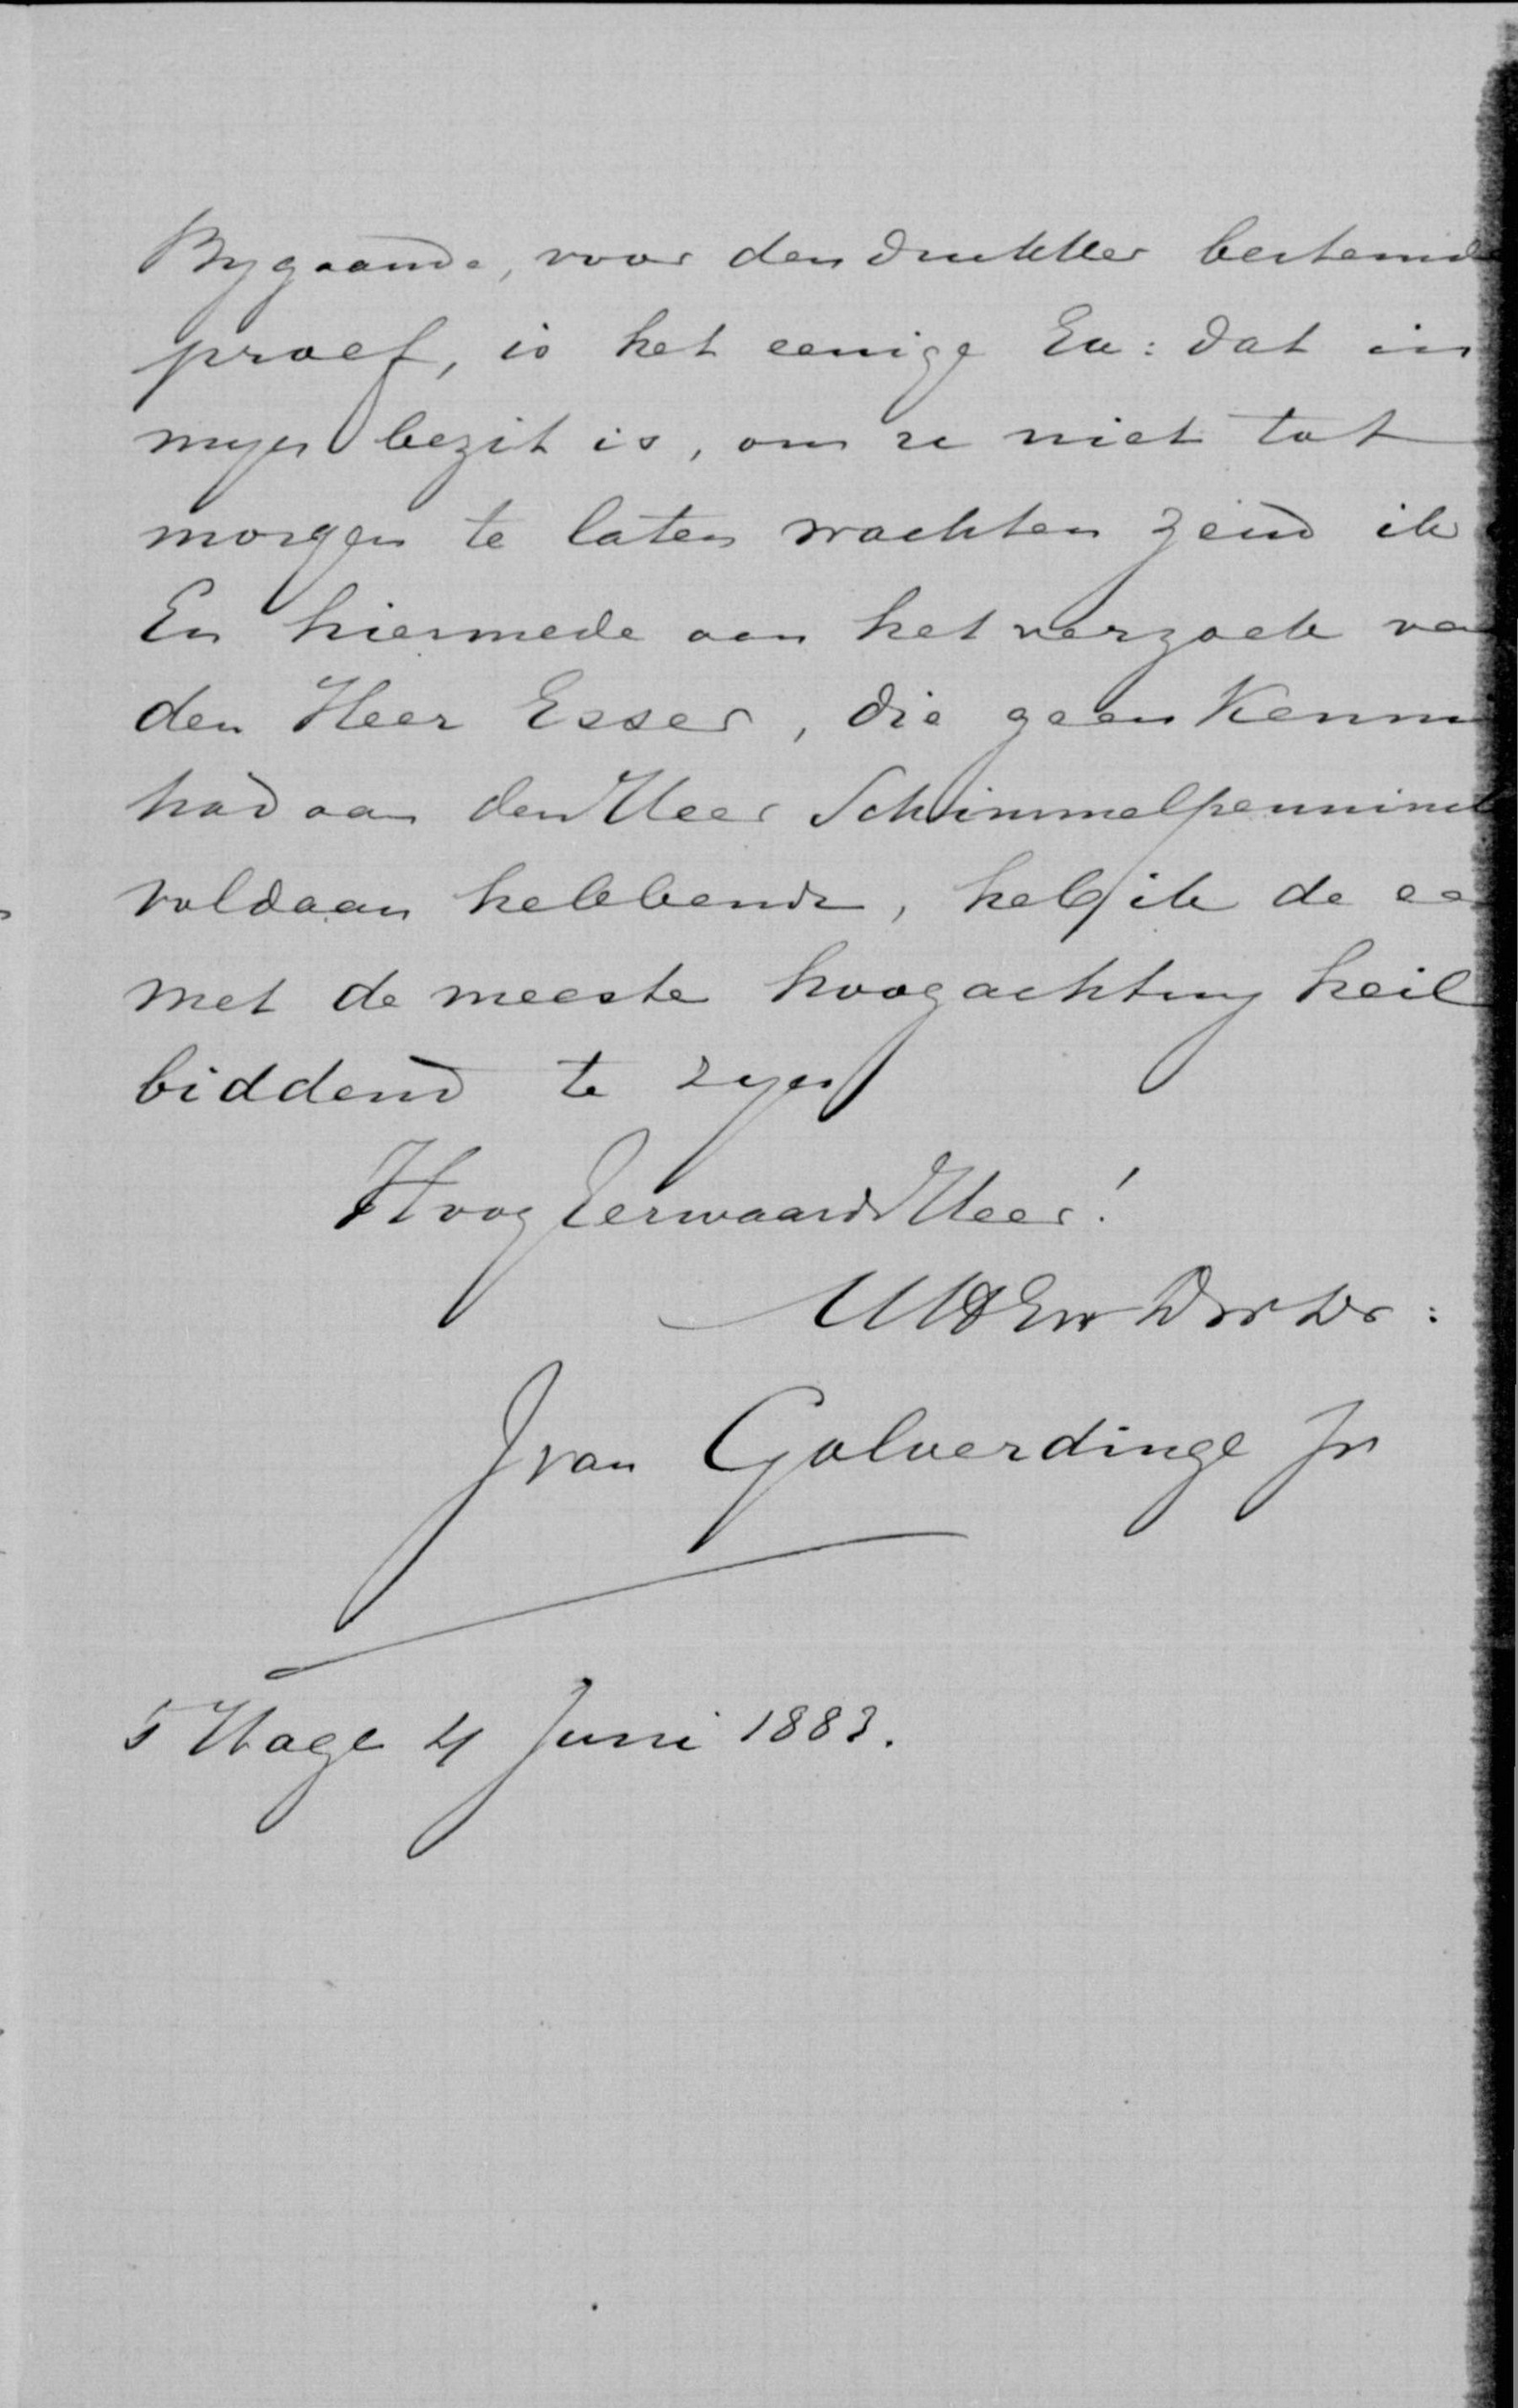 Bygaande, voor den drukker bestemde
proef, is het eenige Ex: dat in
myn bezit is, om ze niet tot
morgen te laten wachten zend ik
En hiermede aan het verzoek va
den Heer Esser, die geen Kenni
had aan den Heer Schimmelpenninck
voldaan hebbende, heb ik de ee
met de meeste hoogachting heil
biddend te zyn
Hoog Eerwaarde Heer!
UHEw Dw Dr:
J van Golverdinge Jr
s Hage 4 Juni 1883.